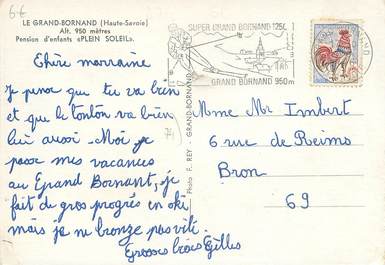 6€
LE GRAND-BORNAND (Haute-Savoie)
Alt. 950 mètres
Pension d'enfants «PLEIN SOLEIL»
SUPER GRAND BORNAND 1250
GRAND BORNAND 950m
Chère marraine
Je pense que tu va bien
et que le tonton va bien
lui aussi - Moi je
passe mes vacances
au Grand Bornant, je
fait de gros progrès en ski
mais je ne bronze pas vite.
Grosses bises Gilles
Photo F. REY - GRAND-BORNAND
74
Mme Mr Imbert
6 rue de Reims
Bron
69